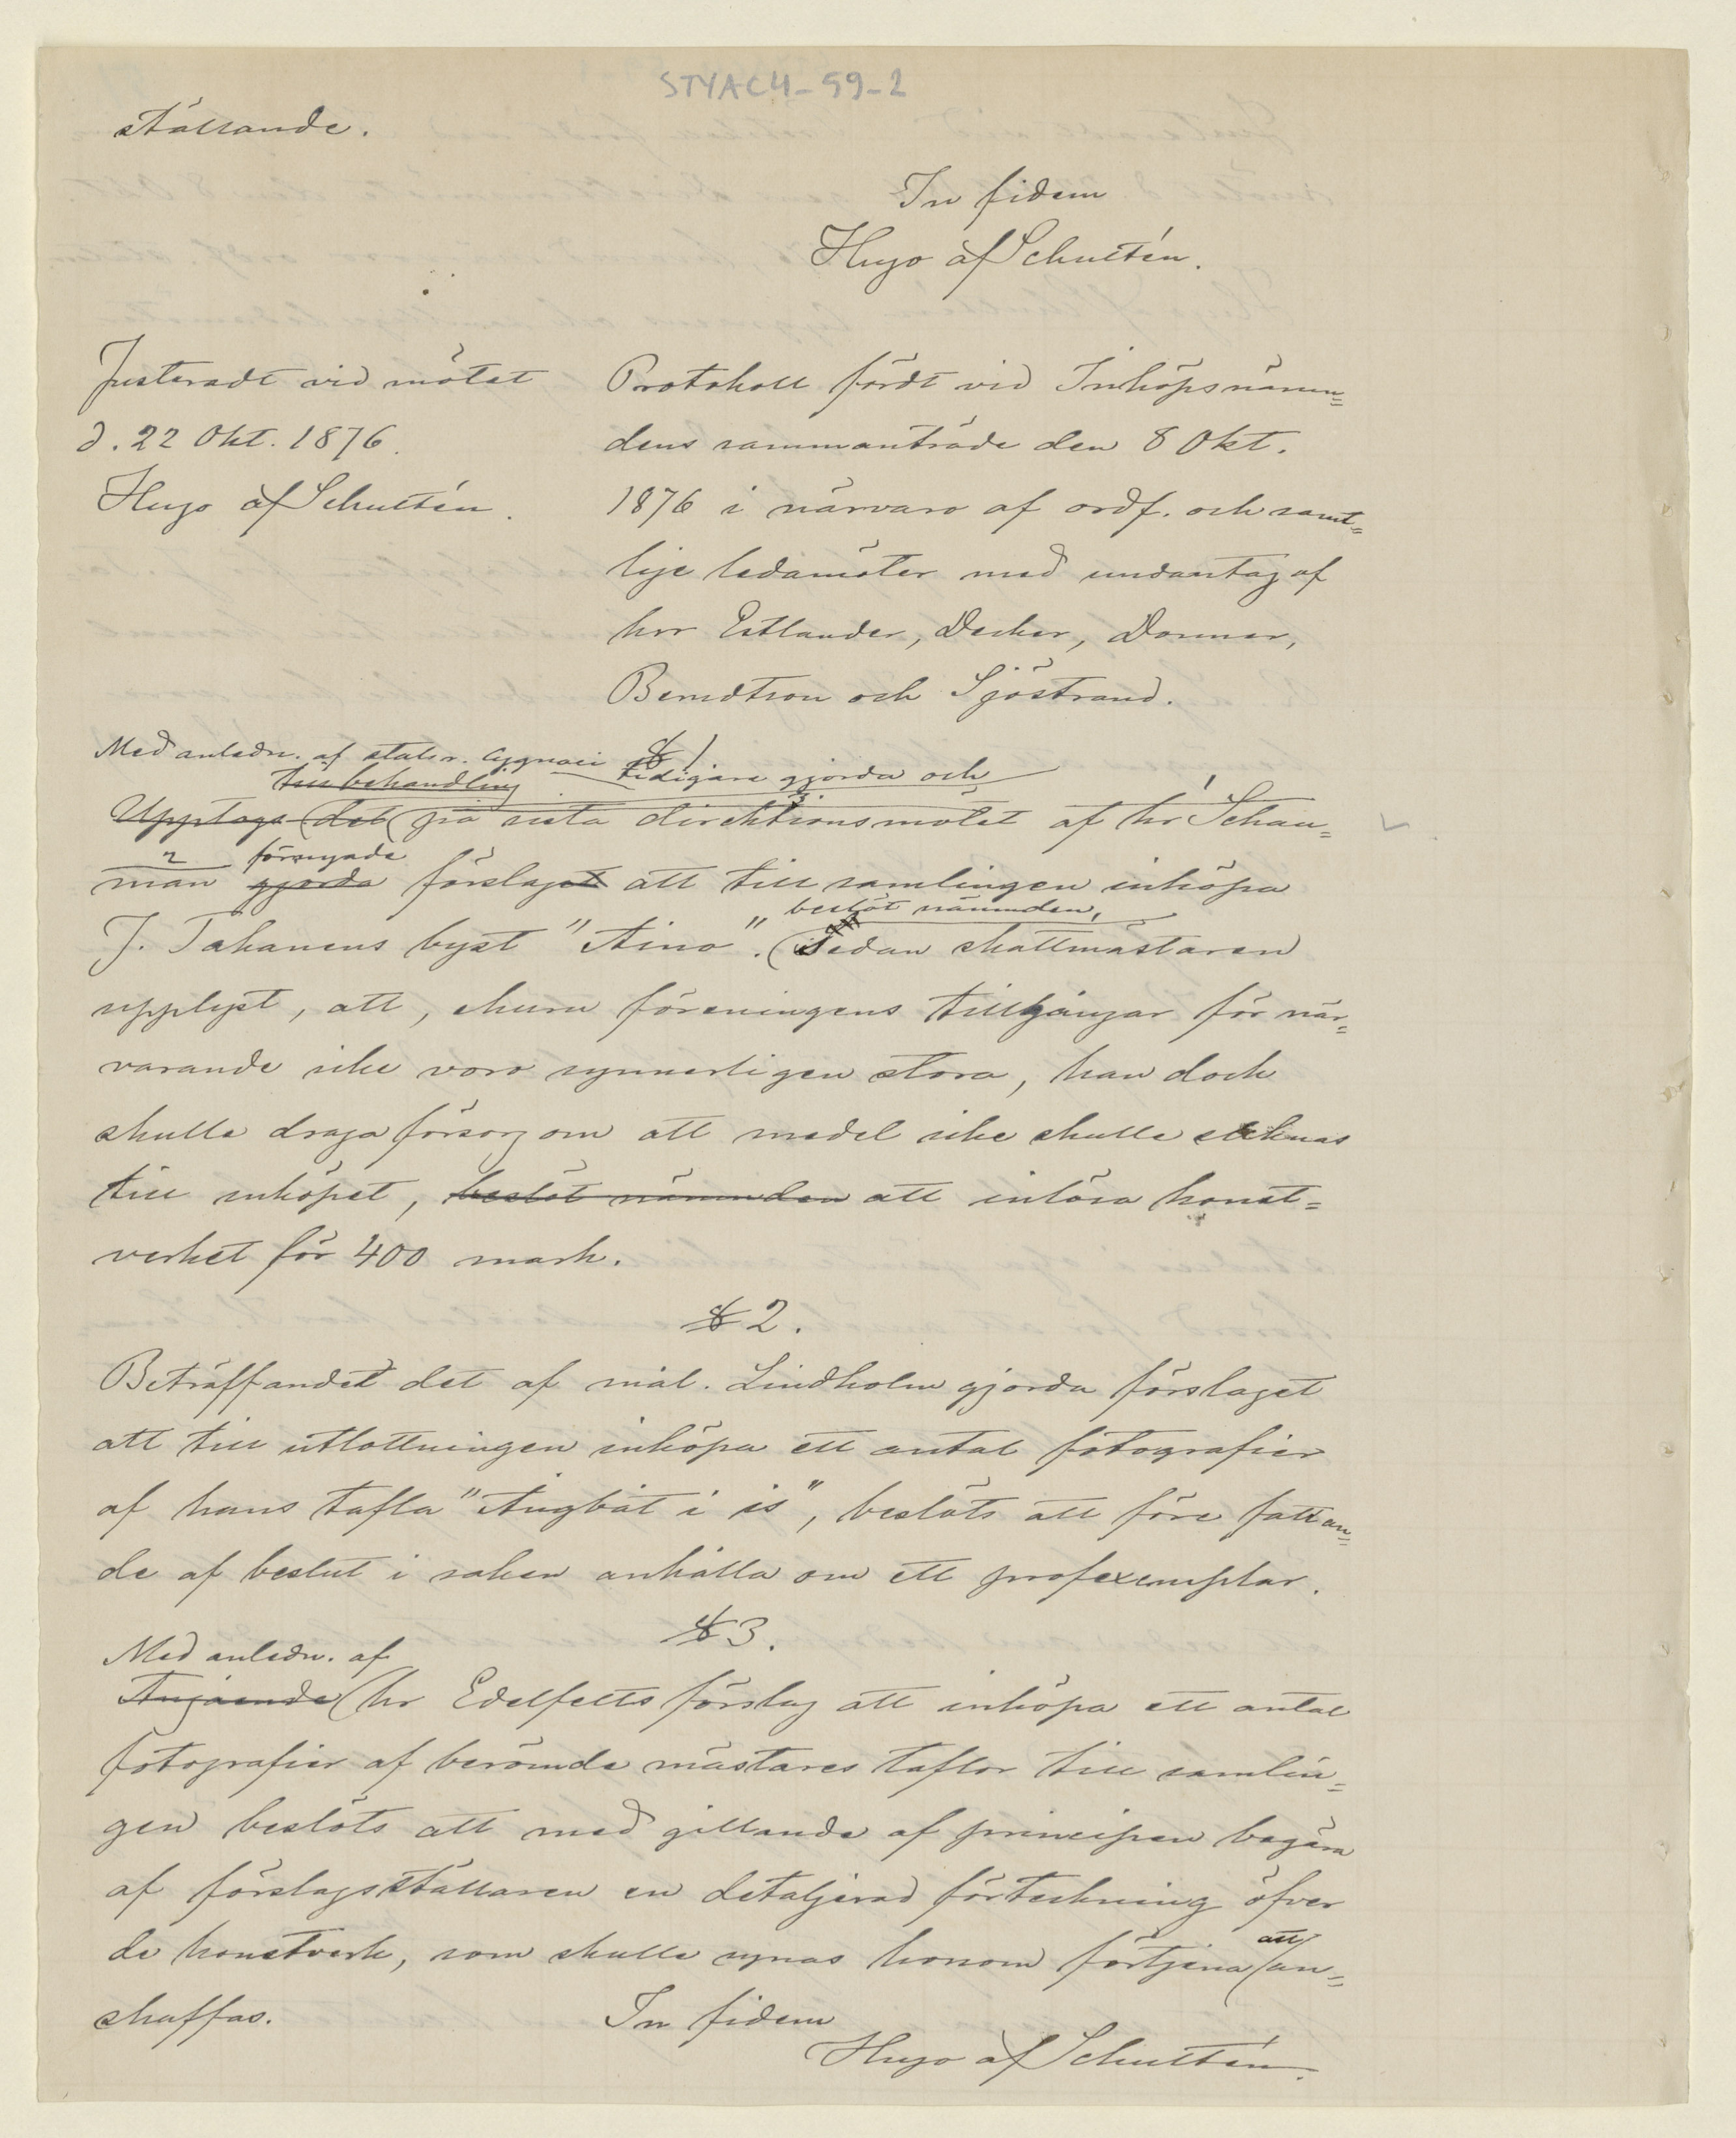 STYAC4-59-2
ställande.
In fidem
Hugo af Schultén.
Justeradt vid mötet
d. 22 Okt. 1876.
Hugo af Schultén.
Protokoll fördt vid Inköpsnämn=
dens sammanträde den 8 Okt.
1876 i närvaro af ordf. och samt=
lige ledamöter med undantag af
hrr Estlander, Decker, Donner,
Berndtson och Sjöstrand.
§ 1
Med anledn. af statsr. Cygnaei tidigare gjorda och
till behandling
Upptogs det på sista direktionsmötet af hr Schau=
förnyade
man gjorda förslaget att till samlingen inköpa
beslöt nämnden,
J. Takanens byst "Aino". Sedan skattmästaren
upplyst, att, ehuru föreningens tillgångar för när=
varande icke voro synnerligen stora, han dock
skulle draga försorg om att medel icke skulle saknas
till inköpet, beslöt nämnden att inlösa konst=
verket för 400 mark.
§ 2.
Beträffandet det af mål. Lindholm gjorda förslaget
att till utlottningen inköpa ett antal fotografier
af hans tafla "Ångbåt i is", beslöts att före fattan=
de af beslut i saken anhålla om ett profexemplar.
§ 3.
Med anledn. af
Angående hr Edelfelts förslag att inköpa ett antal
fotografier af berömde mästares taflor till samlin=
gen beslöts att med gillande af principen begära
af förslagsställaren en detaljerad förteckning öfver
de konstverk, som skulle synas honom förtjena att an=
skaffas.
In fidem
Hugo af Schultén.